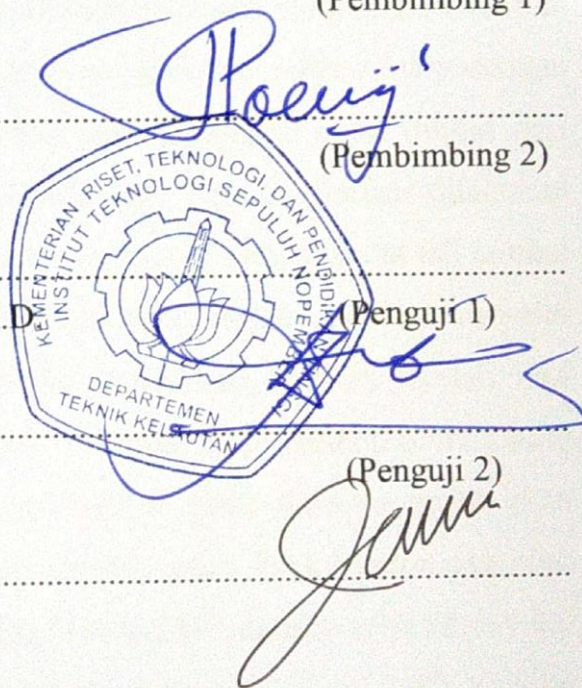 (Pembimbing 1)
(Pembimbing 2)
KEMENTERIAN RISET, TEKNOLOGI, DAN PENDIDIKAN TINGGI
INSTITUT TEKNOLOGI SEPULUH NOPEMBER
.D
(Penguji 1)
DEPARTEMEN
TEKNIK KELAUTAN
(Penguji 2)